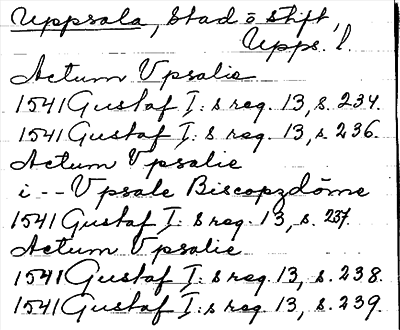 Uppsala, Stad o Stift,
Upps. l.
Actum Vpsalie
1541 Gustaf I: s reg. 13, s. 234.
1541 Gustaf I: s reg. 13, s. 236.
Actum Vpsalie
i -- Vpsale Biscopzdöme
1541 Gustaf I: s reg. 13, s. 237.
Actum Vpsalie
1541 Gustaf I: s reg. 13, s. 238.
1541 Gustaf I: s reg. 13, s. 239.